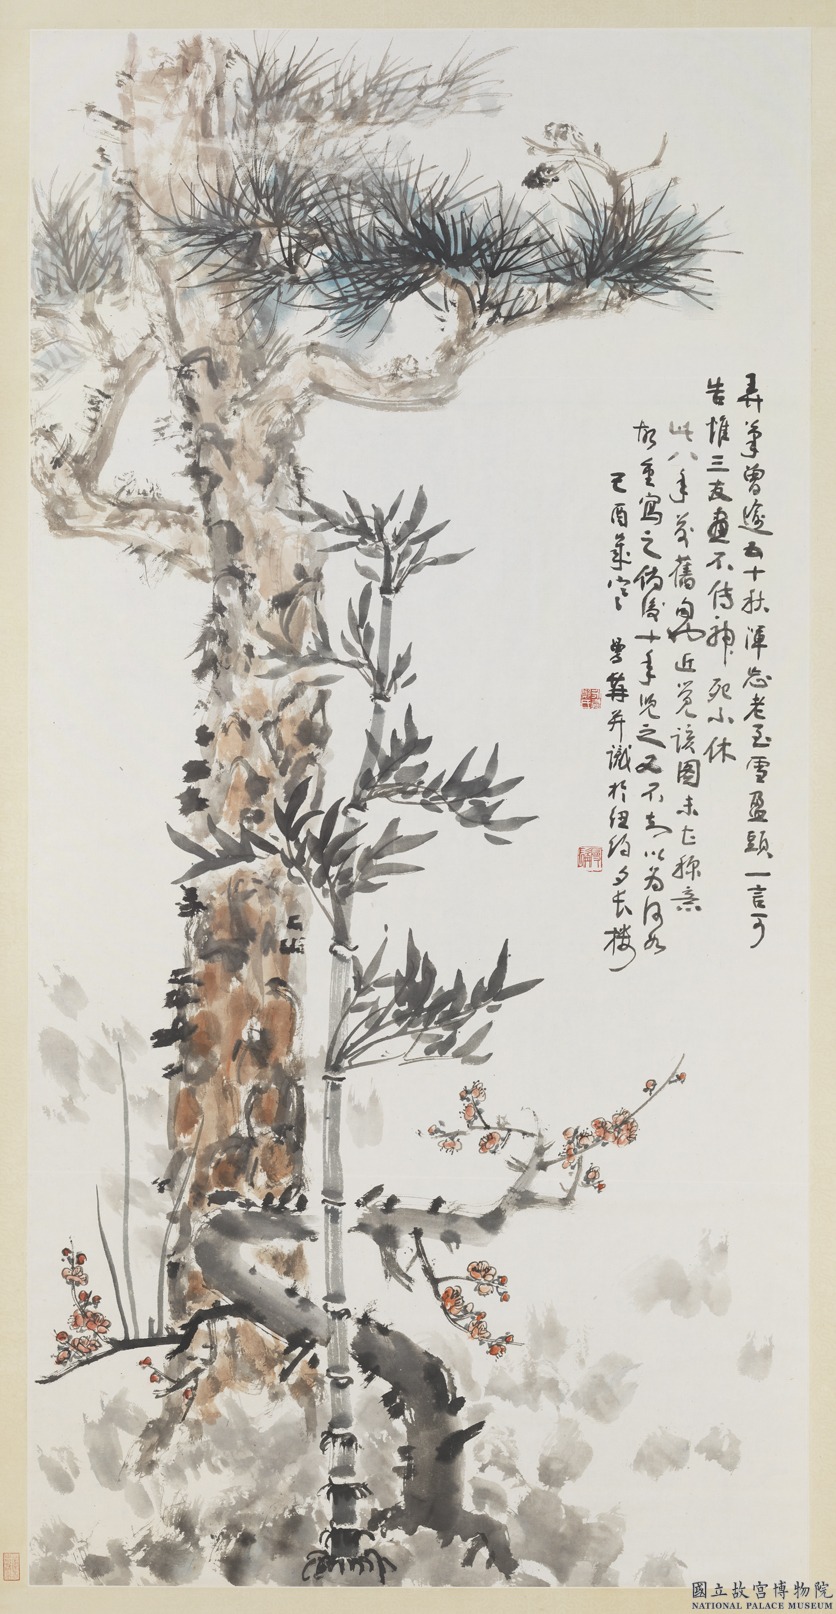 弄筆曾逾五十秋渾忘老至雪盈頭一言可
告惟三友畫不傳神死不休
此八年前舊句也近覺該圖未稱意
故重寫之倘後十年見之又不知以為何如
己酉歲寒 曾并識於紐約長樓
國立故宮博物院
NATIONAL PALACE MUSEUM